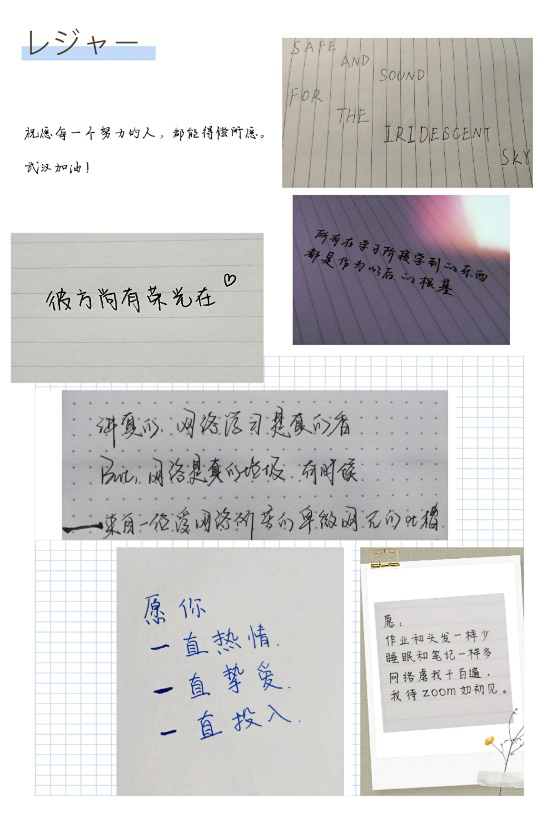 レジャー
SAFE
AND
SOUND
FOR
THE
IRIDESCENT
SKY
祝愿每一个努力的人，都能得偿所愿。
武汉加油！
所有在学习阶段学到的东西
都是作为以后的根基
彼方尚有荣光在♡
讲真的，网络学习是真的香
But，网络是真的垃圾，有时候
——来自一位受网络所苦的卑微网友的吐槽.
愿你
一直热情.
一直挚爱.
一直投入.
愿：
作业和头发一样少
睡眠和笔记一样多
网络虐我千百遍，
我待zoom如初见。